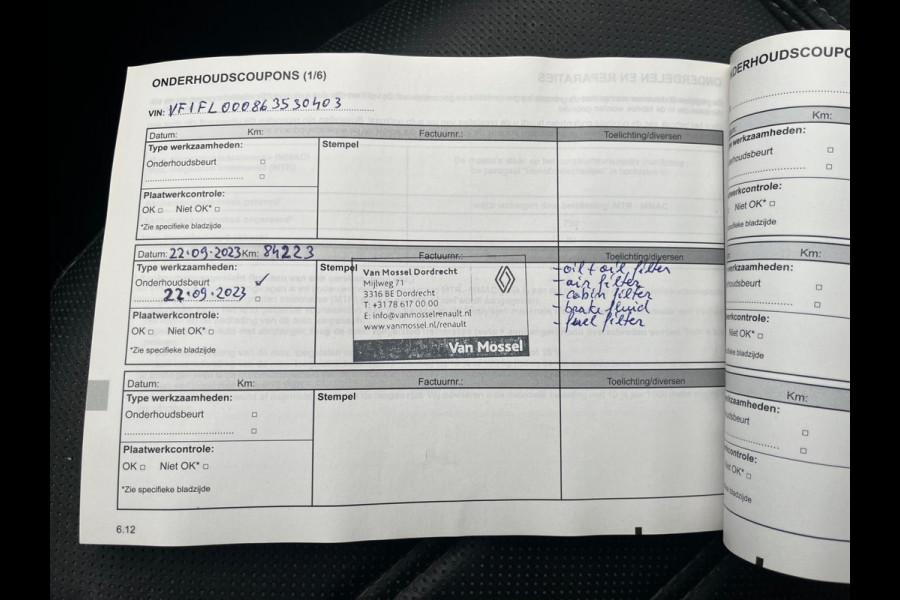 ONDERHOUDSCOUPONS (1/6)
VIN: VF1FL000863530403
Datum: Km: Factuurnr.: Toelichting/diversen
Type werkzaamheden: Stempel
Onderhoudsbeurt □
□
Plaatwerkcontrole:
OK □ Niet OK* □
*Zie specifieke bladzijde
Datum: 22.09.2023 Km: 84223 Factuurnr.: Toelichting/diversen
Type werkzaamheden: Stempel
Onderhoudsbeurt ✓
22.09.2023 □
Plaatwerkcontrole:
OK □ Niet OK* □
*Zie specifieke bladzijde
Van Mossel Dordrecht
Mijlweg 71
3316 BE Dordrecht
T: +31 78 617 00 00
E: info@vanmosselrenault.nl
www.vanmossel.nl/renault
Van Mossel
- oil + oil filter
- air filter
- cabin filter
- brake fluid
- fuel filter
Datum: Km: Factuurnr.: Toelichting/diversen
Type werkzaamheden: Stempel
Onderhoudsbeurt □
□
Plaatwerkcontrole:
OK □ Niet OK* □
*Zie specifieke bladzijde
6.12
DERHOUDSCOUPO
Km:
werkzaamheden:
houdsbeurt □
□
werkcontrole:
Niet OK* □
specifieke bladzijde
Km:
rkzaamheden:
oudsbeurt □
□
kcontrole:
Niet OK* □
ecifieke bladzijde
Km:
zaamheden:
dsbeurt □
□
ontrole:
iet OK* □
fieke bladzijde